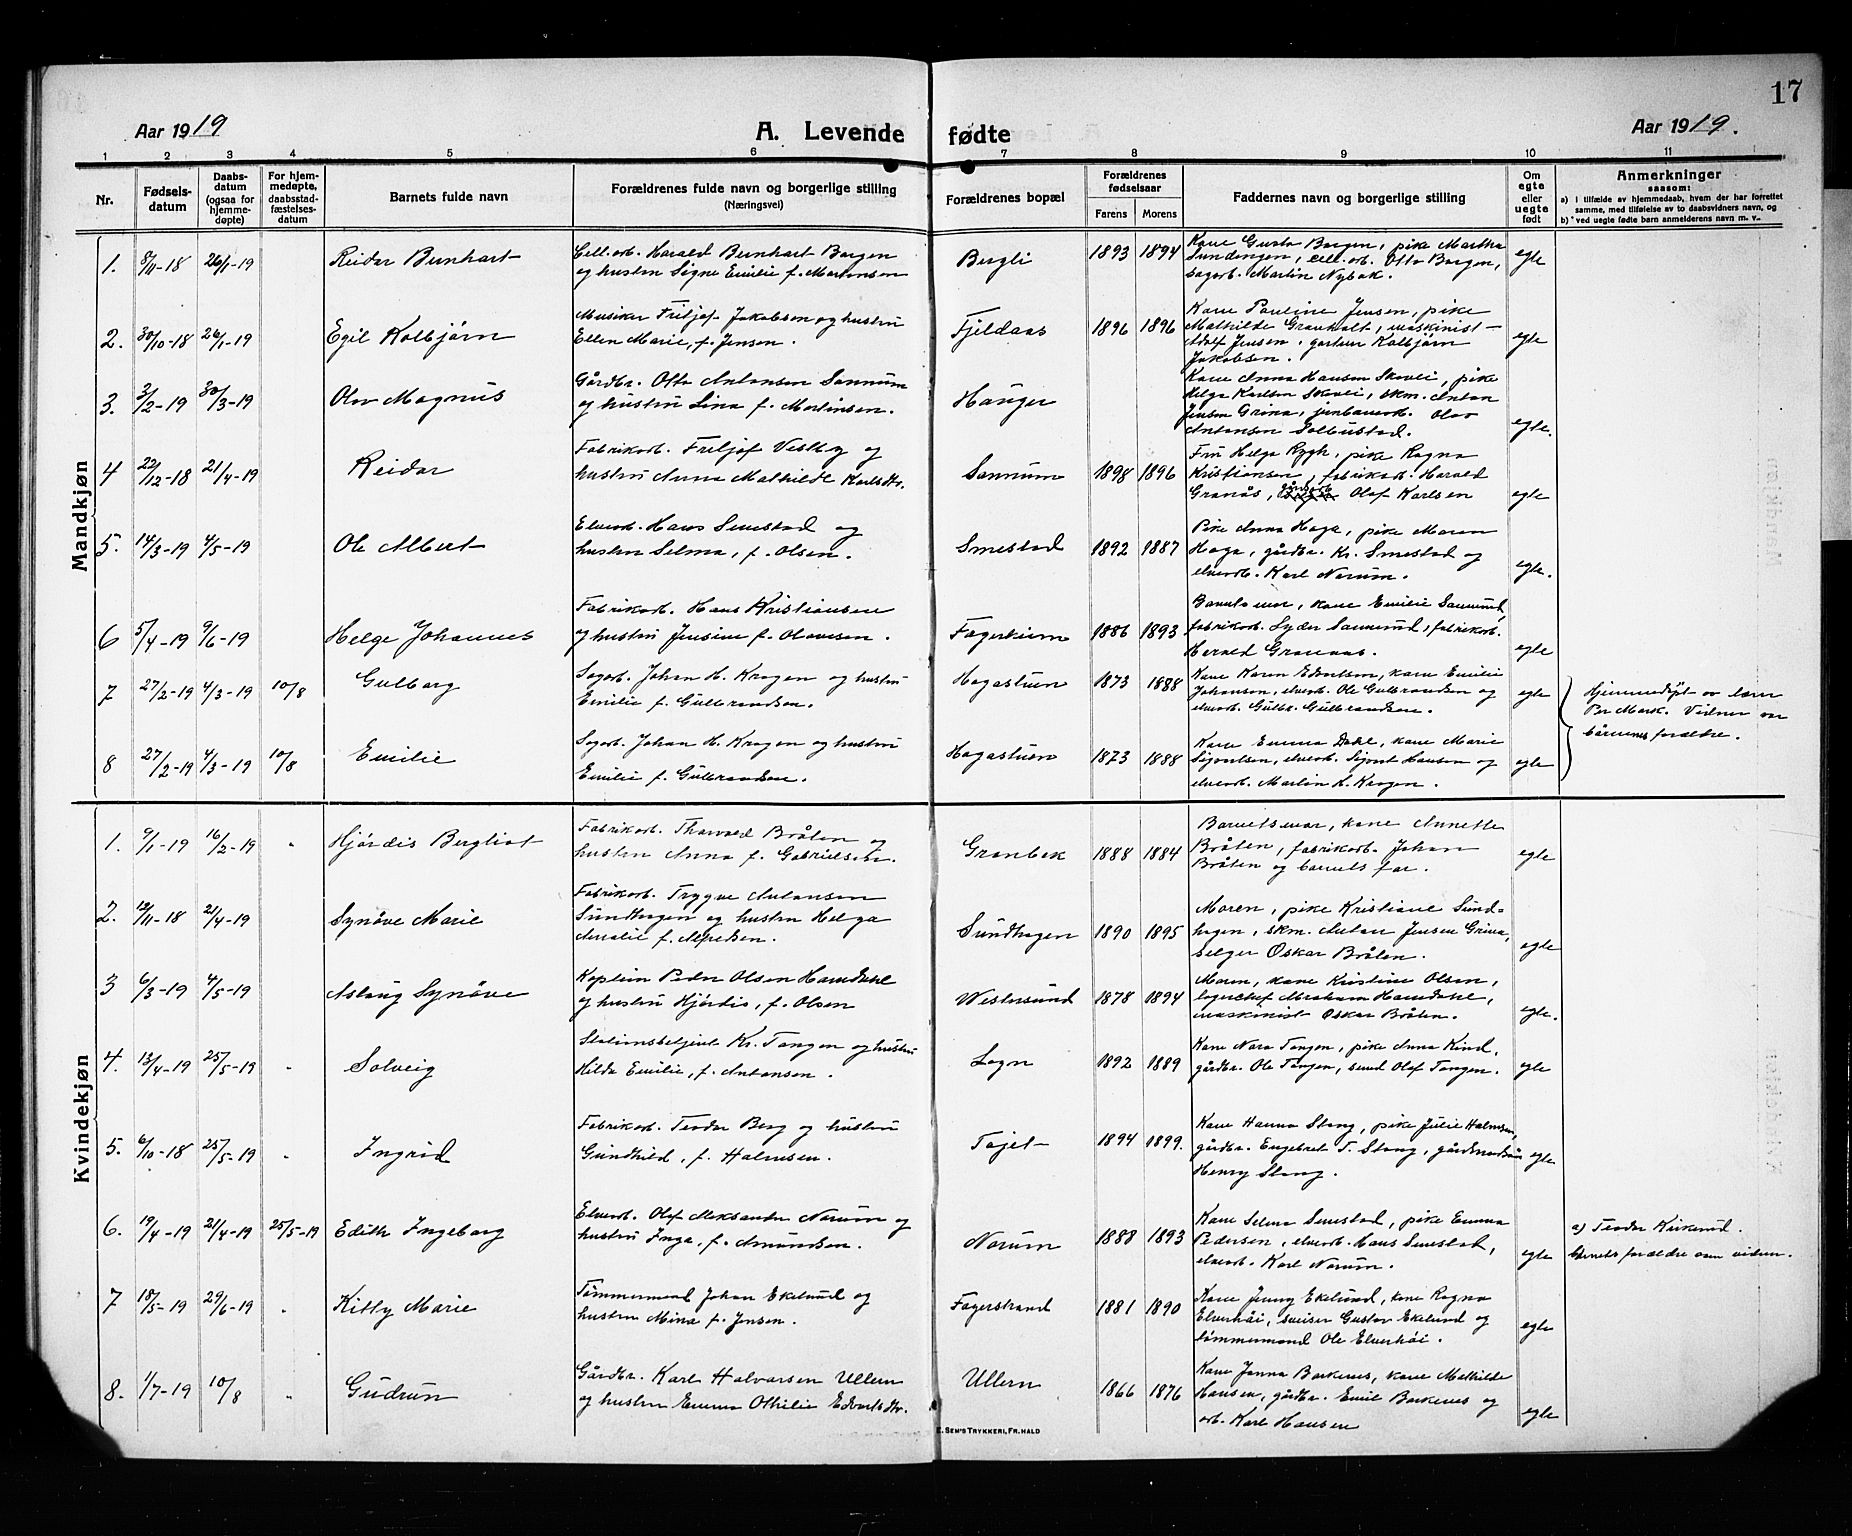 17
Aar 1919
A. Levende fødte
Aar 1919.
1 2 3 4 5 6 7 8 9 10 11
Nr.
Fødsels-
datum
Daabs-
datum
(ogsaa for
hjemme-
døpte)
For hjem-
medøpte,
daabsstad-
fæstelses-
datum
Barnets fulde navn
Forældrenes fulde navn og borgerlige stilling
(Næringsvei)
Forældrenes bopæl
Forældrenes
fødselsaar
Farens Morens
Faddernes navn og borgerlige stilling
Om
egte
eller
uegte
født
Anmerkninger
saasom:
a) i tilfælde av hjemmedaab, hvem der har forrettet
samme, med tilføielse av to daabsvidners navn, og
b) ved uegte fødte barn anmelderens navn m. v.
Mandkjøn
1. 8/11-18 26/1-19 Reidar Bernhart
Cell.arb. Harald Bernhart Borgen
og hustru Signe Emilie f. Mortensen
Bergli 1893 1894
Kone Gusta Borgen, pike Martha
Sundengen, cell.arb. Otto Borgen,
sagarb. Martin Nybak.
egte
2. 30/10-18 26/1-19 Egil Kolbjørn
Musiker Fritjof Jakobsen og hustru
Ellen Marie, f. Jensen.
Fjeldaas 1896 1896
Kone Pauline Jensen, pike
Mathilde Granholt, maskinist
Adolf Jensen, gartner Kolbjørn
Jakobsen.
egte
3. 2/2-19 30/3-19 Olav Magnus
Gårdbr. Otto Antonsen Sannum
og hustru Lina f. Martinsen.
Hauger
Kone Anna Hansen Skovli, pike
Helga Karlsen Skovli, skm. Anton
Jensen Grina, jernbanearb. Olav
Antonsen Solbustad.
egte.
4 22/12-18 21/4-19 Reidar
Fabrikarb. Fritjof Vestby og
hustru Anna Mathilde Karlsdtr.
Sannum 1898 1896
Fru Helga Rygh, pike Ragna
Kristiansen, fabrikarb. Harald
Granås, gårdarb. Olaf Karlsen
egte
5. 14/3-19 4/5-19 Ole Albert
Elvearb. Hans Smestad og
hustru Selma, f. Olsen.
Smestad 1892 1887
Pike Anna Haga, pike Maren
Haga, gårdbr. Kr. Smestad og
elvearb. Karl Norum.
egte.
6 5/4-19 9/6-19 Helge Johannes
Fabrikarb. Hans Kristiansen
og hustru Jensine f. Olavesen.
Fagerheim 1886 1893
Barnets mor, kone Emilie Sannerud,
fabrikarb. Syder Sannerud, fabrikarb.
Harald Granaas.
egte
7 27/2-19 4/3-19 10/8 Gulborg
Sagarb. Johan H. Krogen og hustru
Emilie f. Gulbrandsen.
Hagastuen 1873 1888
Kone Karen Edvartsen, kone Emilie
Johansen, elvearb. Ole Gulbrandsen og
elvearb. Gulbr. Gulbrandsen.
egte
Hjemmedøpt av lærer
Br. Mork. Vidner var
barnenes forældre.
8 27/2-19 4/3-19 10/8 Emilie
Sagarb. Johan H. Krogen og hustru
Emilie f. Gulbrandsen.
Hagastuen 1873 1888
Kone Emma Dahl, kone Marie
Sigvartsen, elvearb. Sigvart Hansen og
elvearb. Martin H. Krogen.
egte
Kvindekjøn
1. 9/1-19 16/2-19 " Hjørdis Bergliot
Fabrikarb. Thorvald Bråten og
hustru Anna f. Gabrielsen.
Granbek 1888 1884
Barnets mor, kone Annette
Bråten, fabrikarb. Johan
Bråten og barnets far.
egte
2. 12/11-18 21/4-19 Synøve Marie
Fabrikarb. Trygve Antonsen
Sundhagen og hustru Helga
Amalie f. Alfredsen.
Sundhagen 1890 1895
Moren, pike Kristiane Sund-
hagen, skm. Anton Jensen Grina,
selger Oskar Bråten.
egte
3 6/3-19 4/5-19 Aslaug Synøve
Kaptein Peder Olsen Hamdahl
og hustru Hjørdis, f. Olsen
Westersund 1878 1894
Moren, kone Kristine Olsen,
lagerchef Abraham Hamdahl,
maskinist Oskar Bråten.
egte.
4. 13/4-19 25/5-19 " Solveig
Stationsbetjent Kr. Tangen og hustru
Hilda Emilie, f. Antonsen.
Sogn 1892 1889
Kone Nora Tangen, pike Anna Kind,
gårdbr. Ole Tangen, smed Olaf Tangen.
egte
5. 6/10-18 25/5-19 " Ingrid
Fabrikarb. Teodor Berg og hustru
Gundhild, f. Halvorsen.
Tajet 1894 1899.
Kone Hanna Stang, pike Julie Halvorsen,
gårdbr. Engebret T. Stang, gårdmandssøn
Henry Stang.
egte
6. 19/4-19 21/4-19 25/5-19 Edith Ingeborg
Elvearb. Olaf Aleksander Norum og
hustru Inga, f. Amundsen.
Norum 1888 1893
Kone Selma Smestad, pike Emma
Pedersen, elvearb. Hans Smestad,
elvearb. Karl Norum.
egte
a) Teodor Kirkerud.
Barnets forældre som vidner.
7 18/5-19 29/6-19 " Kitty Marie
Tømmermand Johan Ekelund og
hustru Mina f. Jensen.
Fagerstrand 1881 1890
Kone Jenny Ekelund, kone Ragna
Elverhøi, sveiser Gustav Ekelund og
tømmermand Ole Elverhøi.
egte
8. 1/7-19 10/8 " Gudrun
Gårdbr. Karl Halvorsen Ullern
og hustru Emma Othilie Edvartsdtr.
Ullern 1866 1876
Kone Janna Barkenes, kone Mathilde
Hansen, gårdbr. Emil Barkenes og
arb. Karl Hansen
egte
E. SEM'S TRYKKERI, FR. HALD